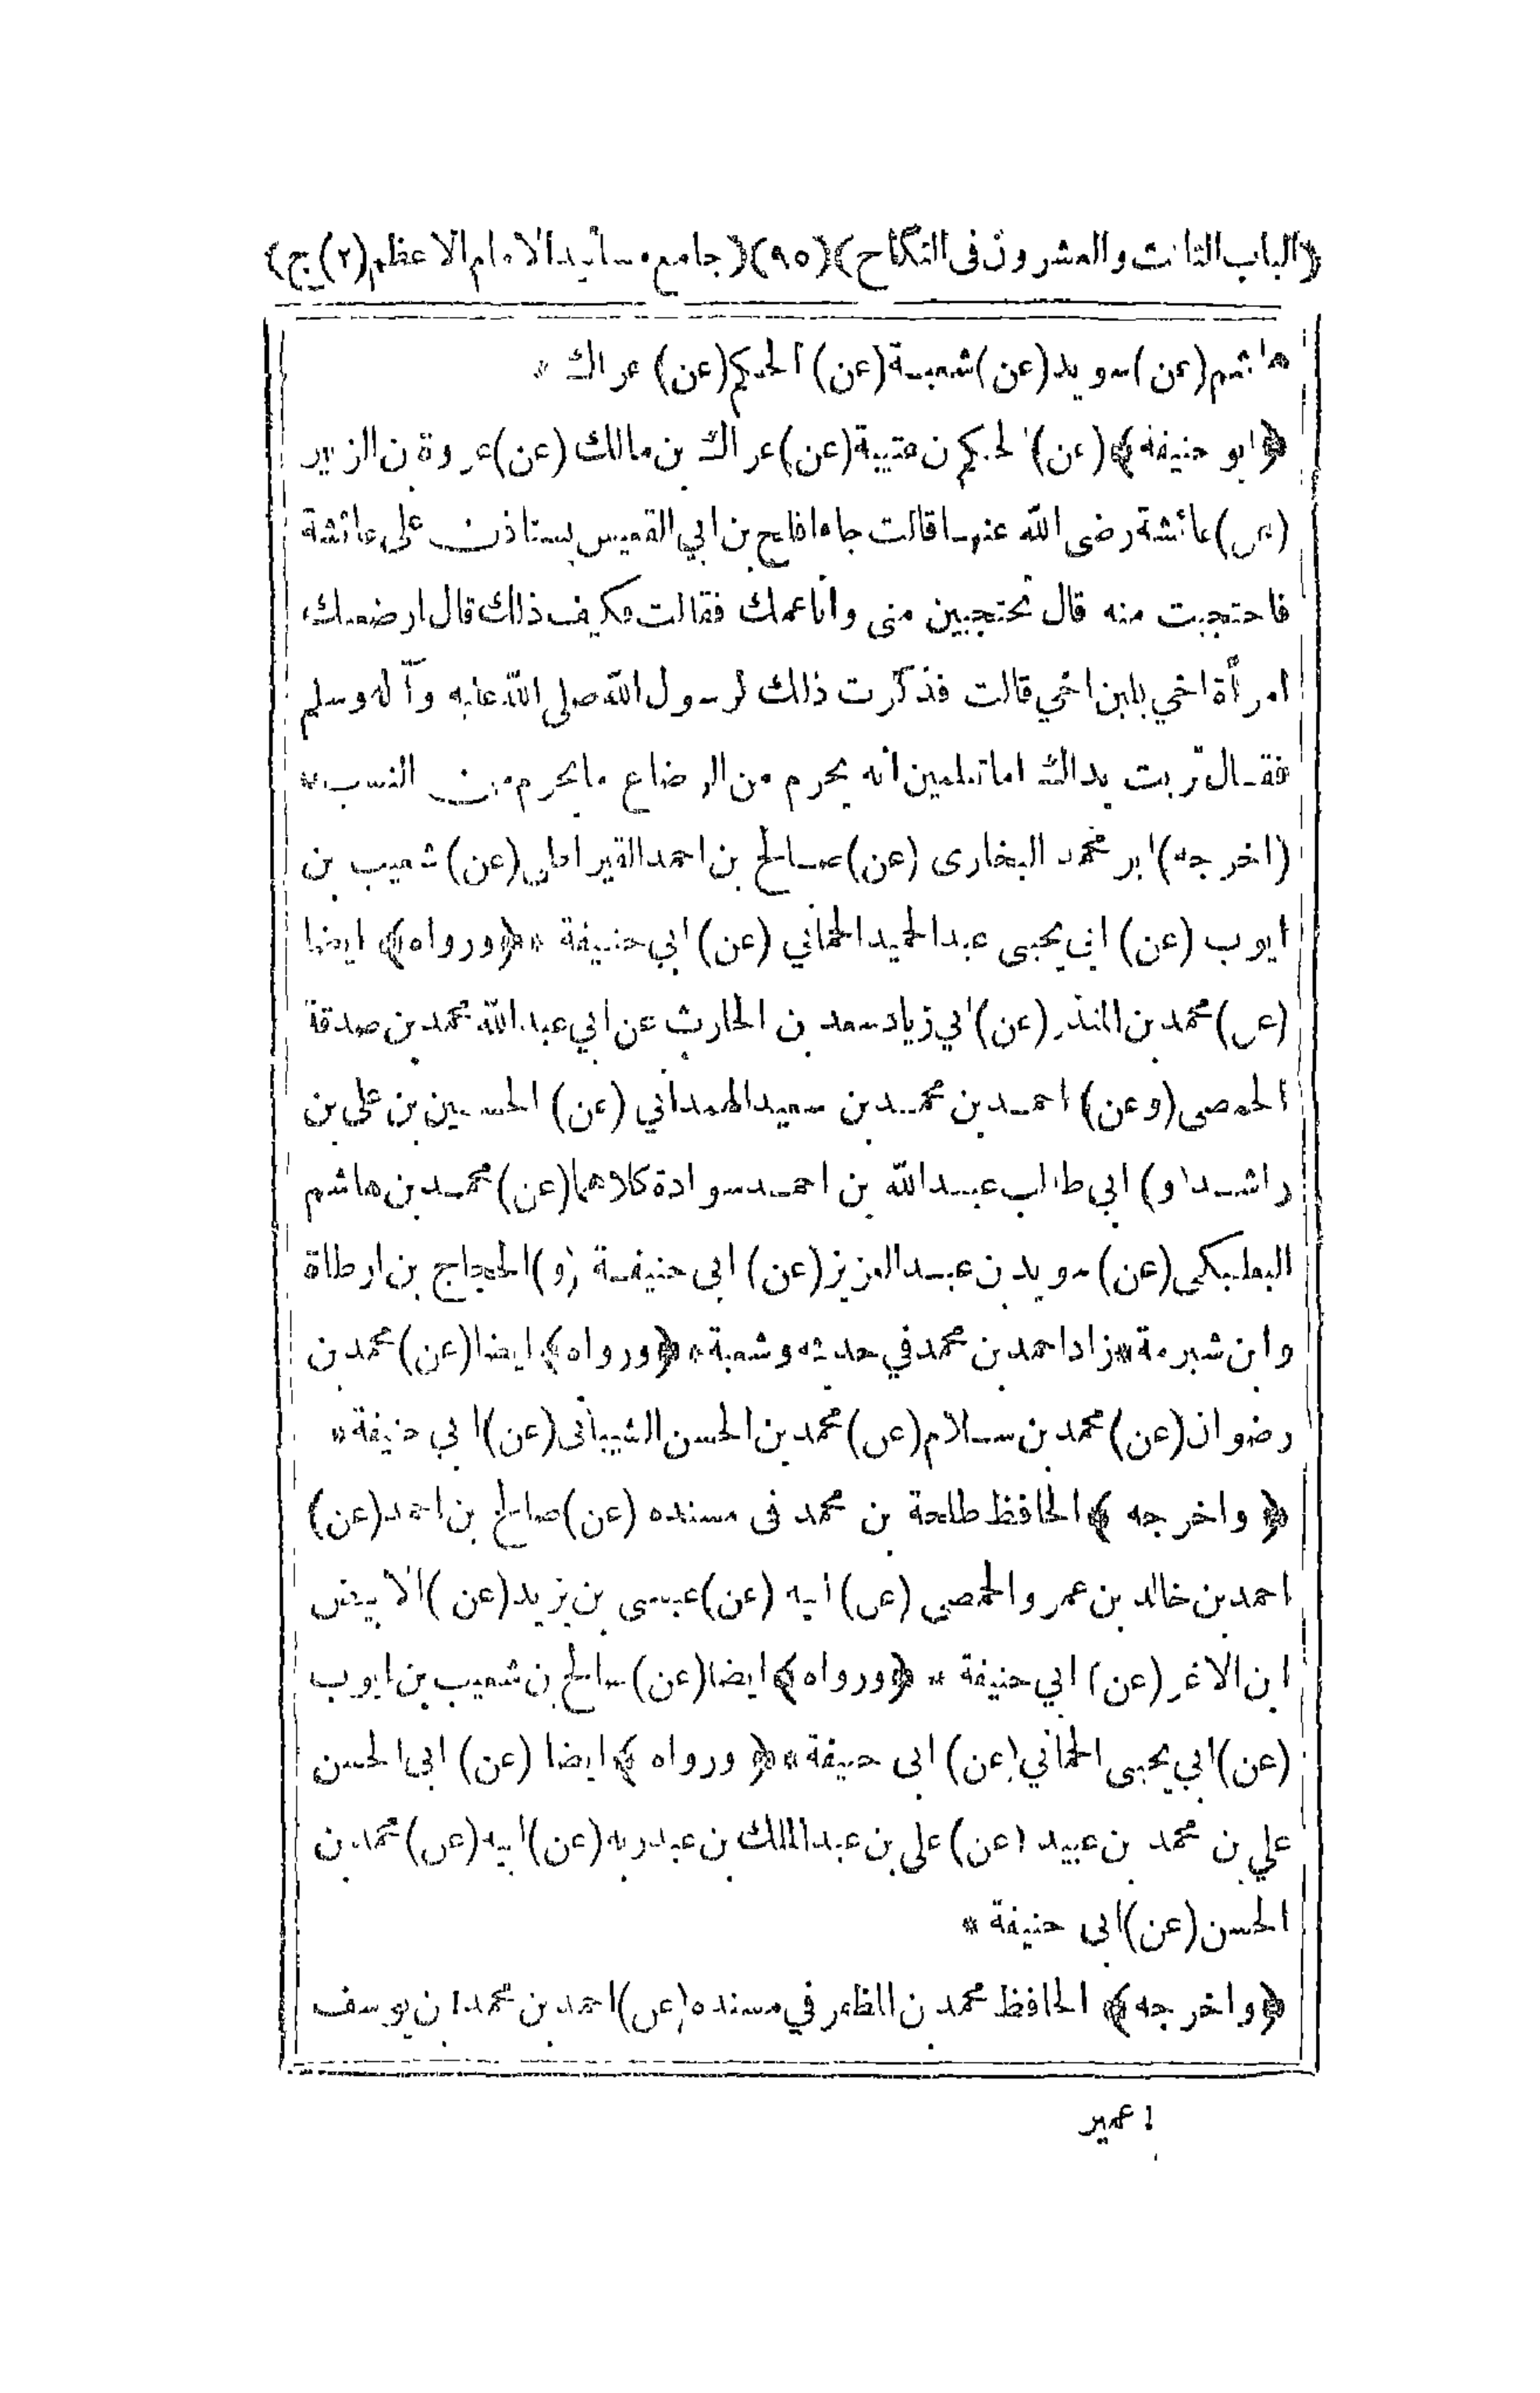 ﴿الباب الثالث والعشرون فى النكاح﴾ (٩٥) ﴿جامع مسانيد الامام الاعظم (٢) ج﴾
هاشم (عن) سويد (عن) شعبة (عن) الحكم (عن) عراك *
﴿ابو حنيفة﴾ (عن) الحكم بن عتيبة (عن) عراك بن مالك (عن) عروة بن الزبير
(عن) عائشة رضى الله عنها قالت جاء افلح بن ابي القعيس يستاذن على عائشة
فاحتجبت منه قال تحتجبين منى وانا عمك فقالت فكيف ذلك قال ارضعتك
امرأة اخي بلبن اخي قالت فذكرت ذلك لرسول الله صلى الله عليه وآله وسلم
فقال تربت يداك اما تعلمين انه يحرم من الرضاع ما يحرم من النسب *
(اخرجه) ابو محمد البخارى (عن) صالح بن احمد القيراطي (عن) شعيب بن
ايوب (عن) ابي يحيى عبد الحميد الحماني (عن) ابي حنيفة * ﴿ورواه﴾ ايضا
(عن) محمد بن المنذر (عن) ابي زياد سعد بن الحارث عن ابي عبد الله محمد بن صدقة
الحمصى (وعن) احمد بن محمد بن سعيد الهمداني (عن) الحسين بن على بن
راشد (و) ابي طالب عبد الله بن احمد سوادة كلاهما (عن) محمد بن هاشم
البعلبكى (عن) سويد بن عبد العزيز (عن) ابى حنيفة (و) الحجاج بن ارطاة
وابن شبرمة * زاد احمد بن محمد في حديثه وشعبة * ﴿ورواه﴾ ايضا (عن) محمد بن
رضوان (عن) محمد بن سلام (عن) محمد بن الحسن الشيبانى (عن) ابي حنيفة *
﴿واخرجه﴾ الحافظ طلحة بن محمد فى مسنده (عن) صالح بن احمد (عن)
احمد بن خالد بن عمرو الحمصى (عن) ابيه (عن) عيسى بن يزيد (عن) الابيض
ابن الاغر (عن) ابي حنيفة * ﴿ورواه﴾ ايضا (عن) صالح بن شعيب بن ايوب
(عن) ابي يحيى الحماني (عن) ابى حنيفة * ﴿ورواه﴾ ايضا (عن) ابى الحسن
علي بن محمد بن عبيد (عن) علي بن عبد الملك بن عبد ربه (عن) ابيه (عن) محمد بن
الحسن (عن) ابى حنيفة *
﴿واخرجه﴾ الحافظ محمد بن المظفر في مسنده (عن) احمد بن محمد ابن يوسف
١ عمير